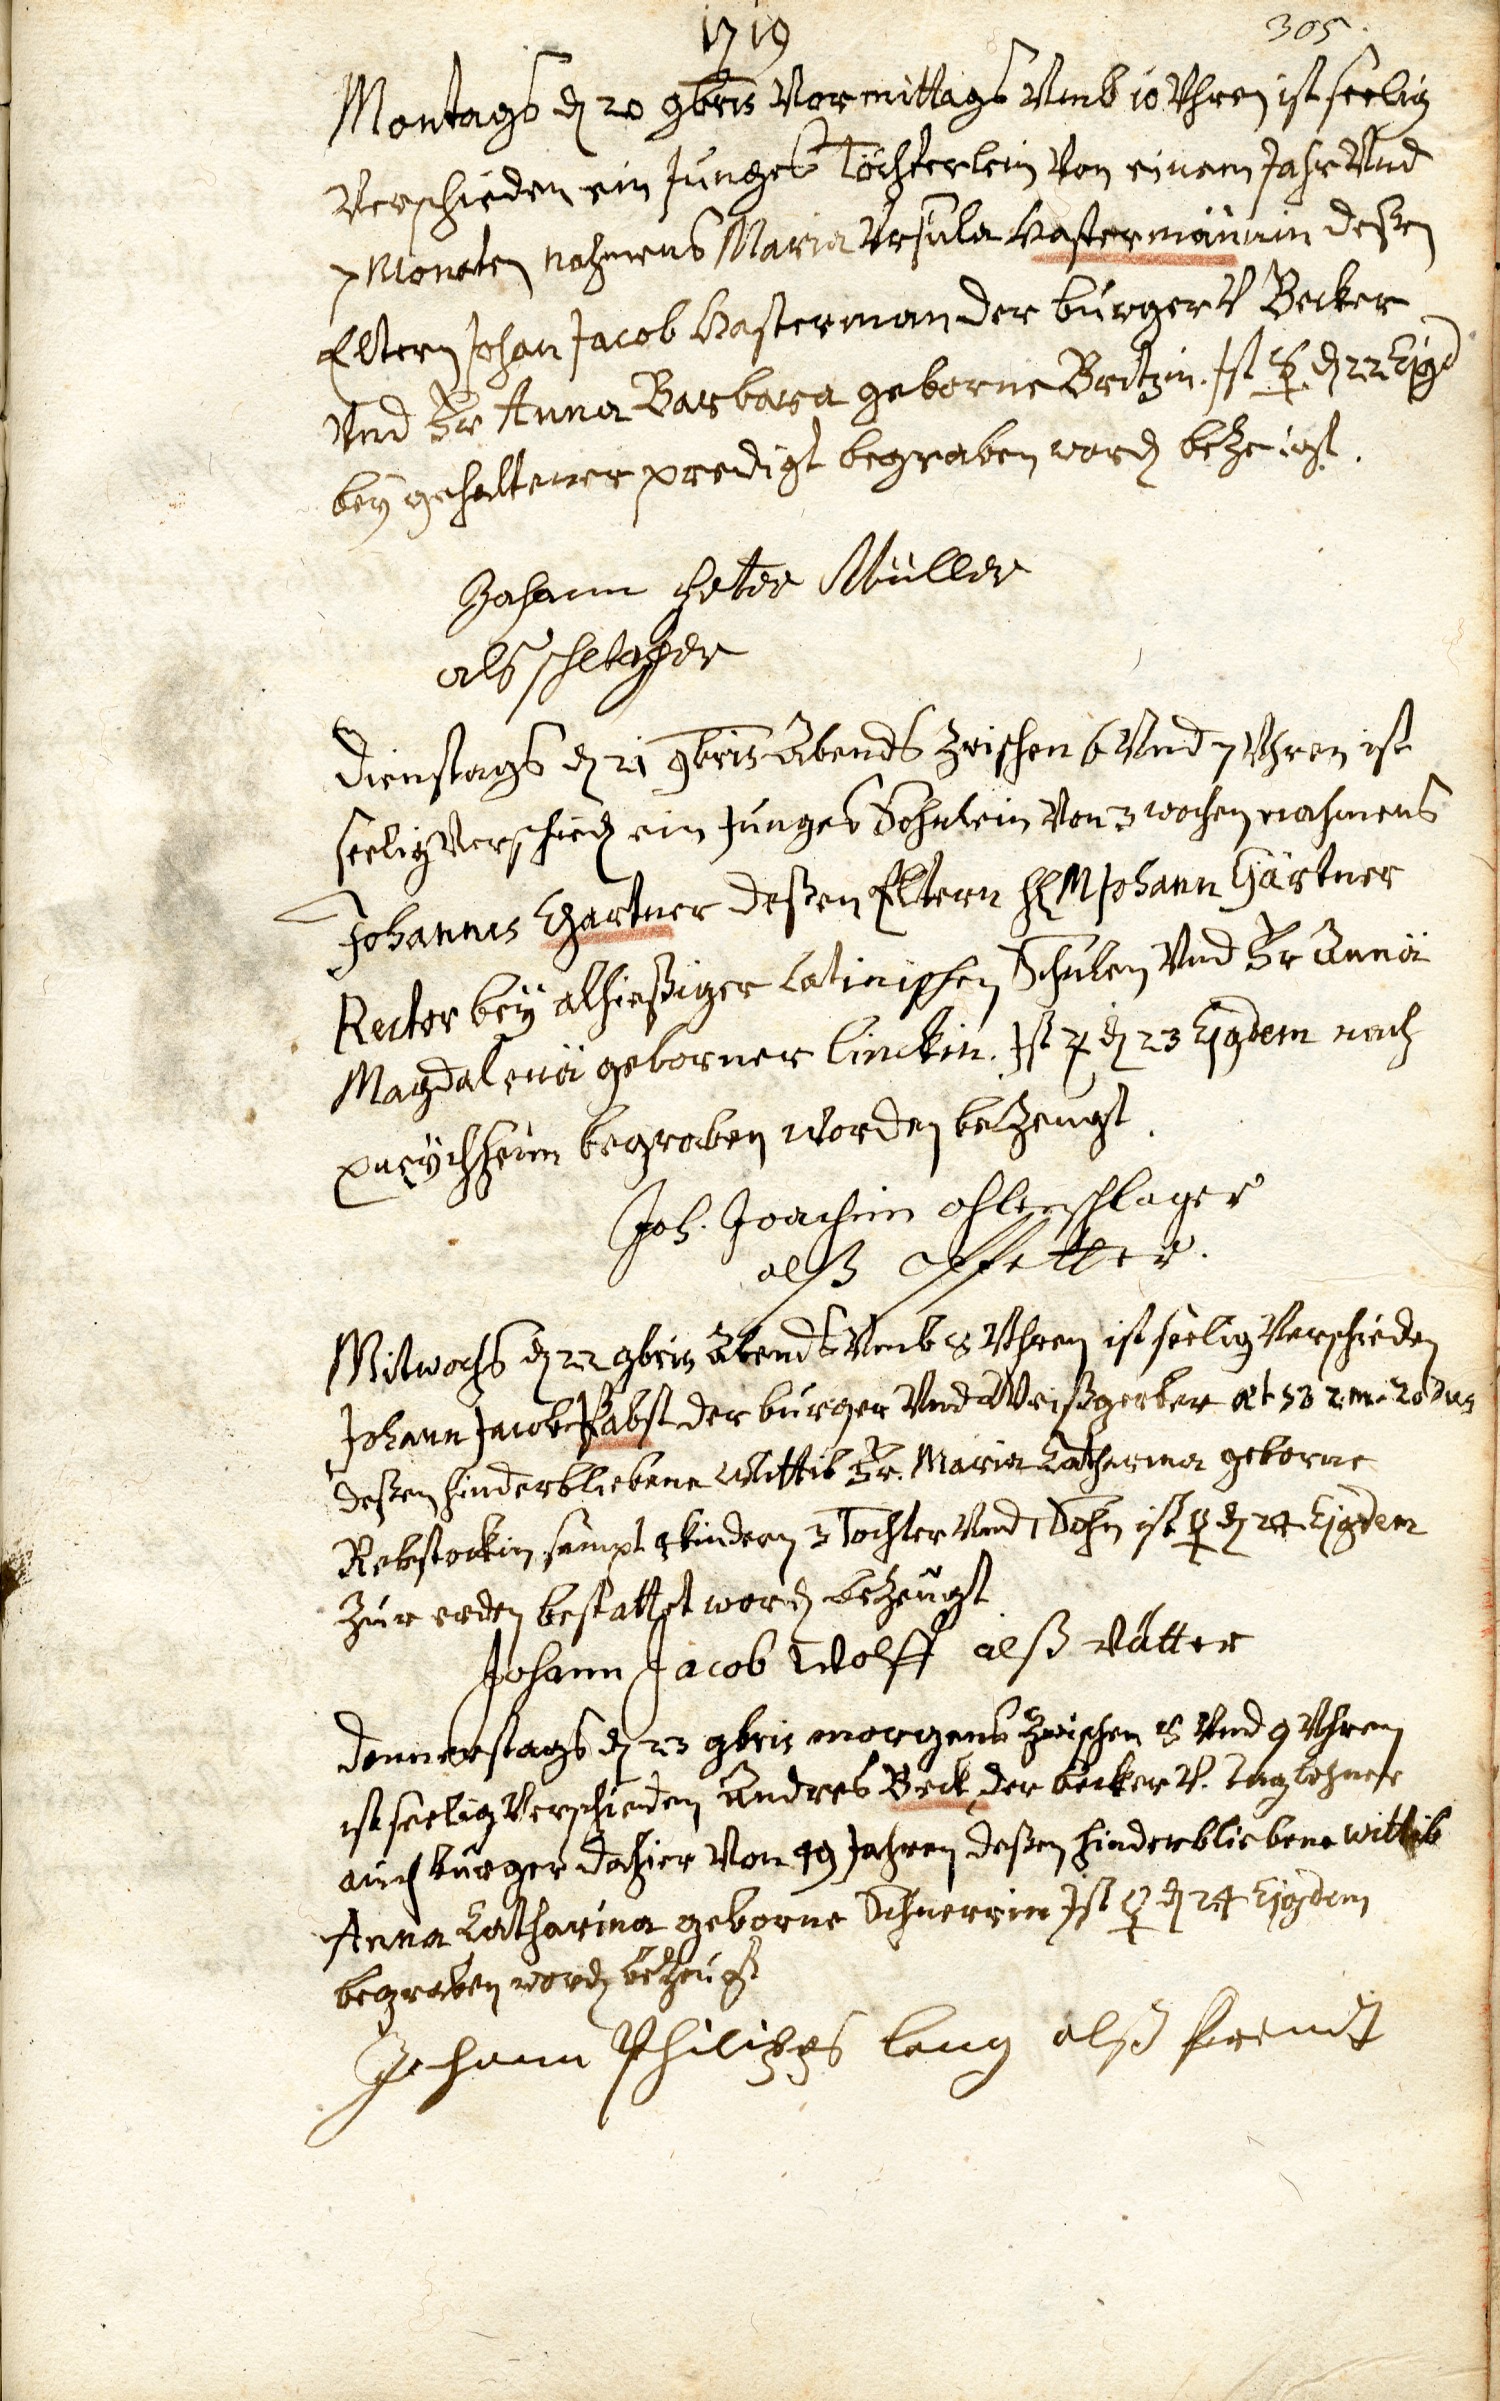 1719
305.
Montags d 20 9bris Vormittags Vmb 10 Vhren ist seelig
Verschieden ein Junges Töchterlein Von einem Jahr Vnd
7 Monaten nahmens Maria Vrsula Hastermännin deßen
Eltern Johan Jacob Hasterman der burger V Becker
Vnd Fr Anna Barbara geborne Britzin. Ist d 22 Ejgd
bey gehaltener predigt begraben word bezeugt.
Johann Peter Müller
als
Dienstags d 21 9bris Abends zwischen 6 Vnd 7 Vhren ist
seelig Verschied ein Junges Sohnlein Von 3 wochen nahmens
Johannes Gartner deßen Eltern H M Johann Gärtner
Rector bey alhießiger Latinischen Schulen Vnd Fr Annä
Magdalenä geborner Linckin. Ist 4 d 23 Ejgdem nach
begraben worden bezeugt.
Joh. Joachim ohlenschlager
alß Pfetter.
Mitwochs d 22 9bris Abends Vmb 8 Vhren ist seelig Verschieden
Johann Jacob Pabst der burger Vnd Weißgerber æt 53 2 m. 20
deßen hinderbliebene Wittib Fr. Maria Catharina geborne
Rebstockin sampt 4 kindern 3 Tochter Vnd 1 Sohn ist ♀ d 24 Ejgdem
Zur erden bestattet word bezeugt
Johann Jacob Wolff alß Vätter
Donnerstags d 23 9bris morgens Zwischen 8 Vnd 9 Vhren
ist seelig Verschieden Andres Beck der becker V. Taglohner
auch burger dahier Von 49 Jahren deßen hinderbliebene wittib
Anna Catharina geborne Schnerrin Ist ♀ d 24 Ejgdem
begraben word bezeugt
Johann Philipps lang alß freindt